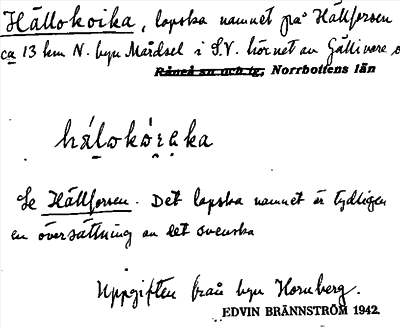 Hällokoika, lapska namnet på Hällforsen
ca 13 km N. byn Mårdsel i S.V. hörnet av Gällivare s
Råneå sn och tg, Norrbottens län
hálokórₑka
Se Hällforsen. Det lapska namnet är tydligen
en översättning av det svenska
Uppgiften från byn Hornberg.
EDVIN BRÄNNSTRÖM 1942.